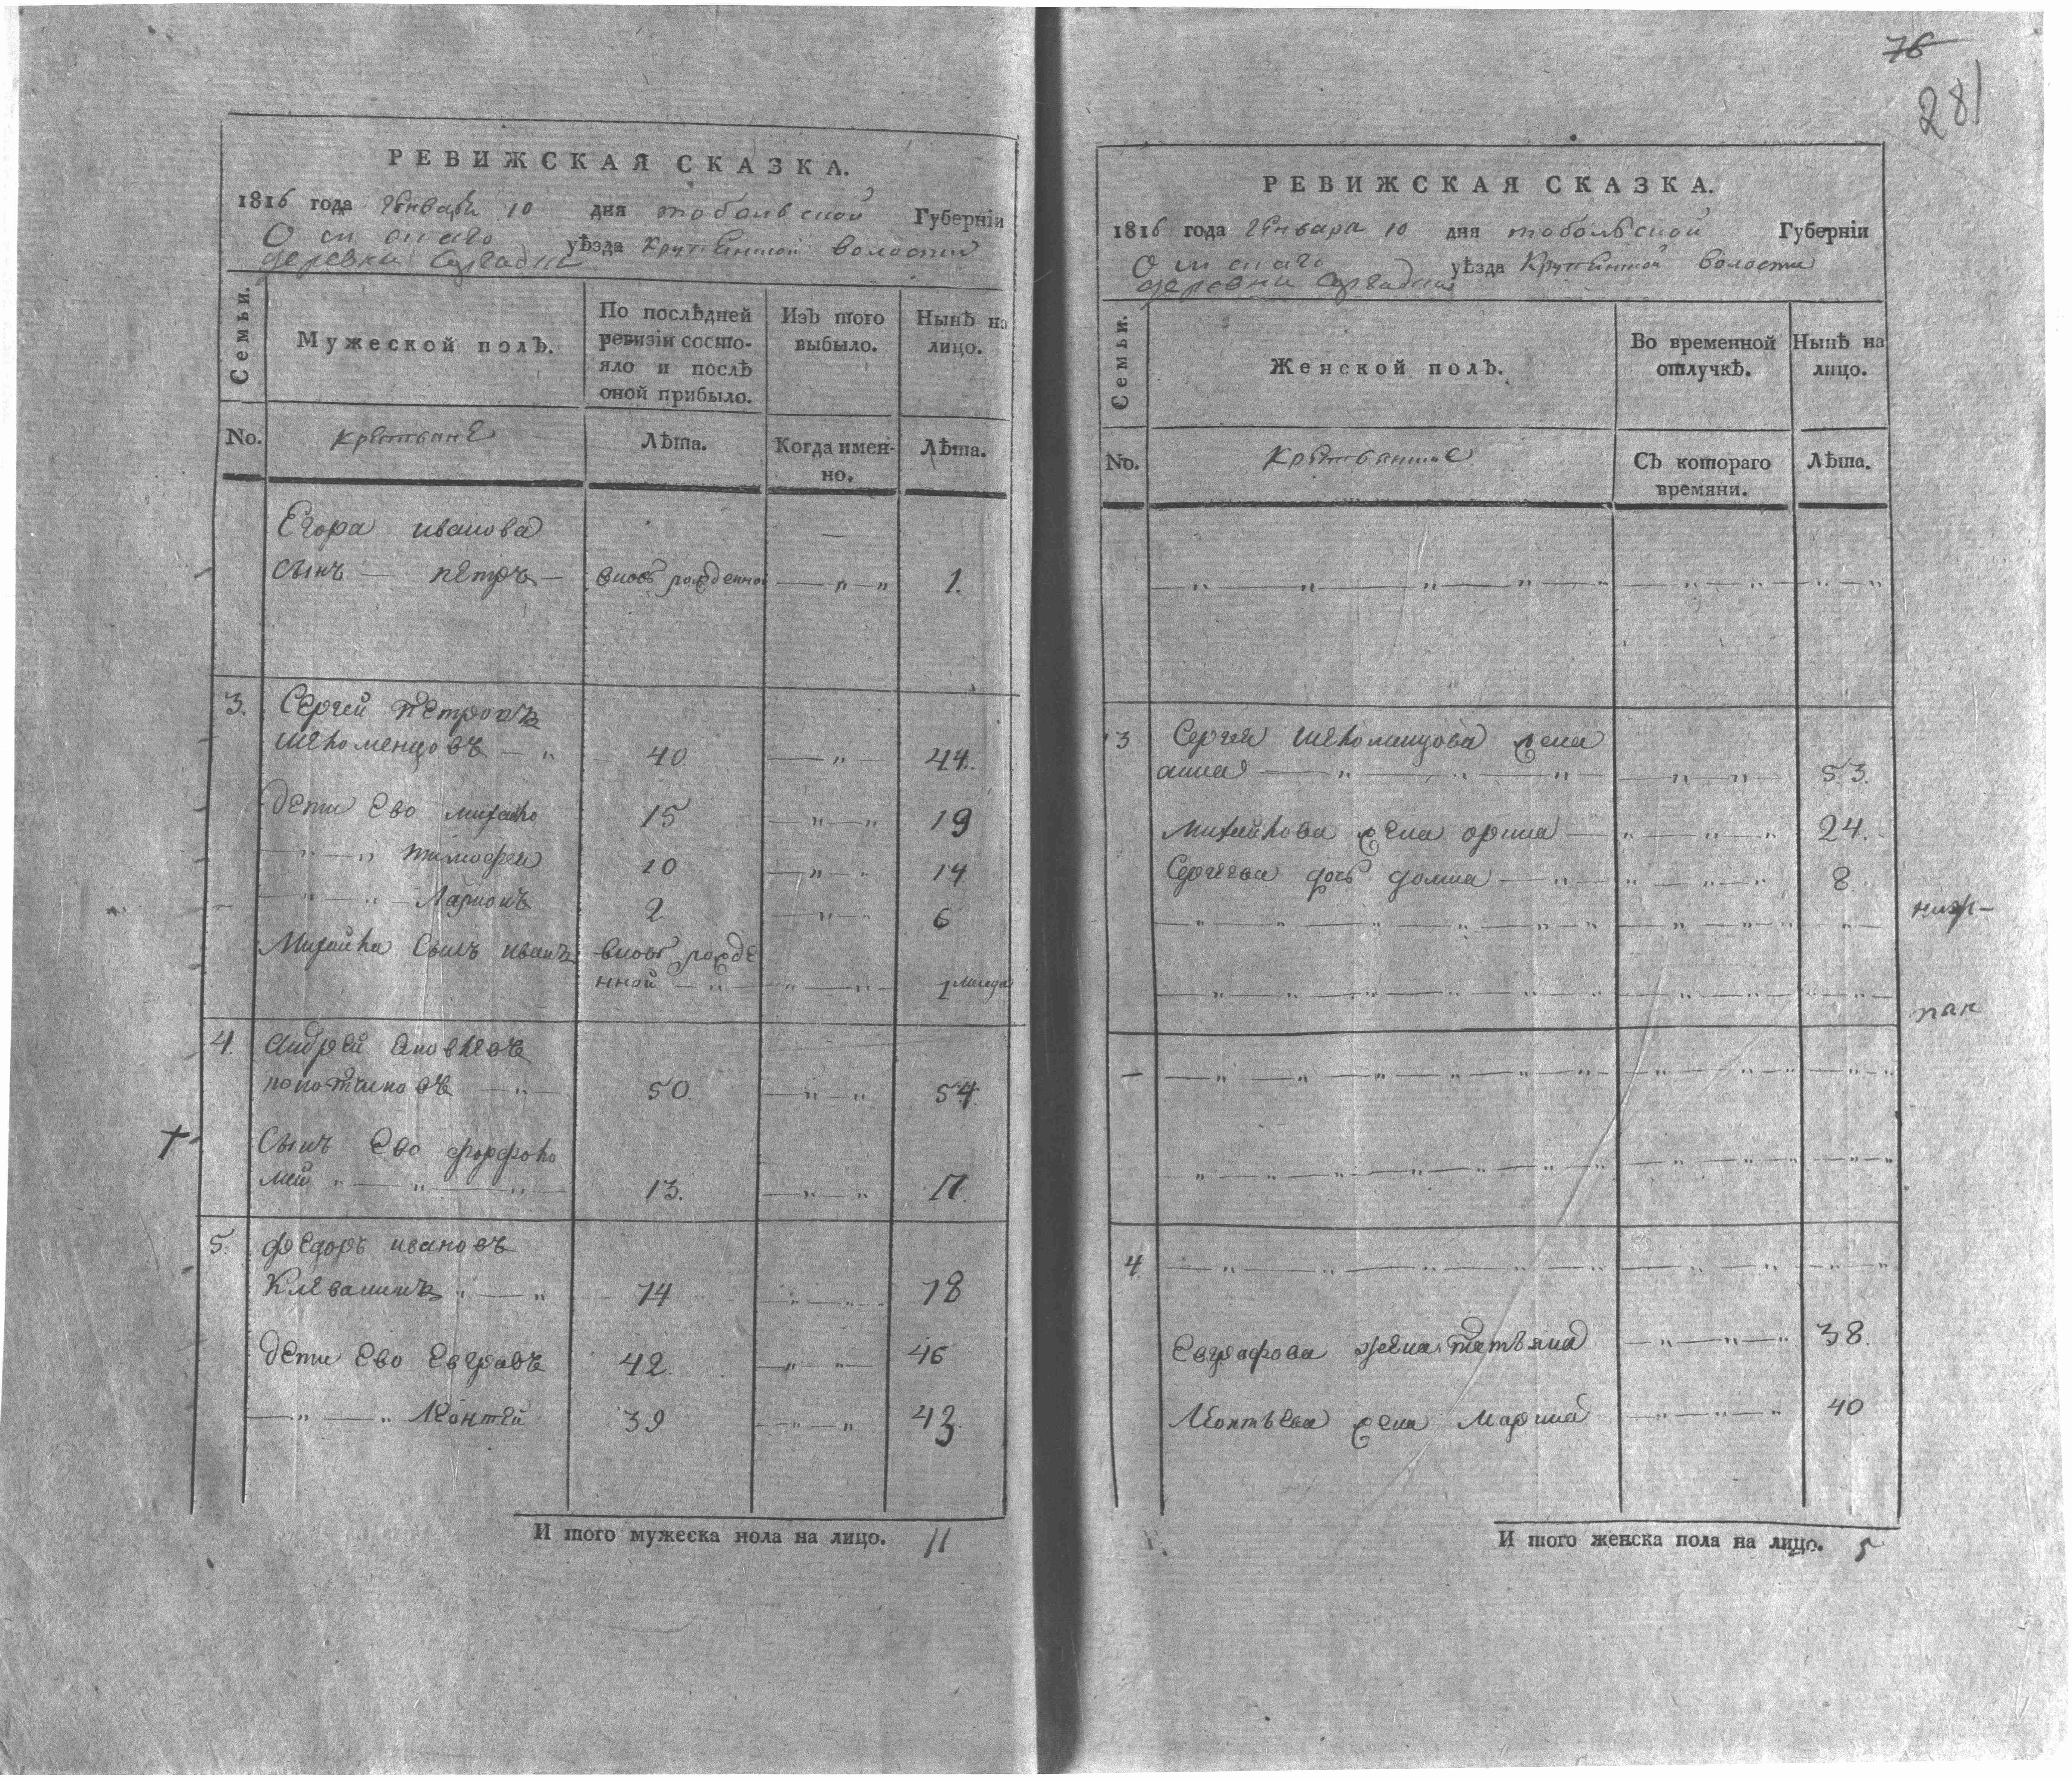 РЕВИЖСКАЯ СКАЗКА.
1816 года Генваря 10 дня тобольской Губерніи
Омскаго уѣзда Крупенской волости
деревни Сургацкой
Семьи.
Мужеской полъ.
По послѣдней ревизіи состояло и послѣ оной прибыло.
Изъ того выбыло.
Нынѣ на лицо.
No.
крестьяне
Лѣта.
Когда именно.
Лѣта.
Егора иванова
сынъ — петръ — вновь рожденной — „ „ 1.
3. Сергей Петровъ
шеломенцовъ — „ 40 — „ — 44.
дети ево михайло 15 „ — „ 19
„ — „ тимофей 10 — „ — „ 14
— „ — „ — Ларионъ 2 — „ — „ 6
Михайла сынъ иванъ вновь рожде
нной — „ — „ — „ 1
4. Андрей Яковлевъ
полотнековъ — „ — 50. — „ — „ 54.
Сынъ ево форфоло
мей „ — „ — „ — 13. — „ — „ 17.
5. федоръ ивановъ
Клевакинъ „ — „ 74 „ — „ 78
дети ево Евграфъ 42. — „ — „ 46
— „ — „ Леонтей 39 — „ — „ 43.
И того мужеска пола на лицо. 11
76
281
РЕВИЖСКАЯ СКАЗКА.
1816 года Генваря 10 дня тобольской Губерніи
Омскаго уѣзда Крупенской волости
деревни Сургацкой
Семьи.
Женской полъ.
Во временной отлучкѣ.
Нынѣ на лицо.
No.
Крестьянские
Съ котораго времяни.
Лѣта.
3 Сергея шеломенцова жена
анна — „ — „ — „ — „ — „ 53.
Михайлова жена орина — „ — „ — „ 24.
Сергеева дочь домна — „ — „ — „ — „ 8
4
Евграфова жена татьяна — „ — „ — „ 38.
Леонтьева жена Марина — „ — „ — „ 40
И того женска пола на лицо. 5